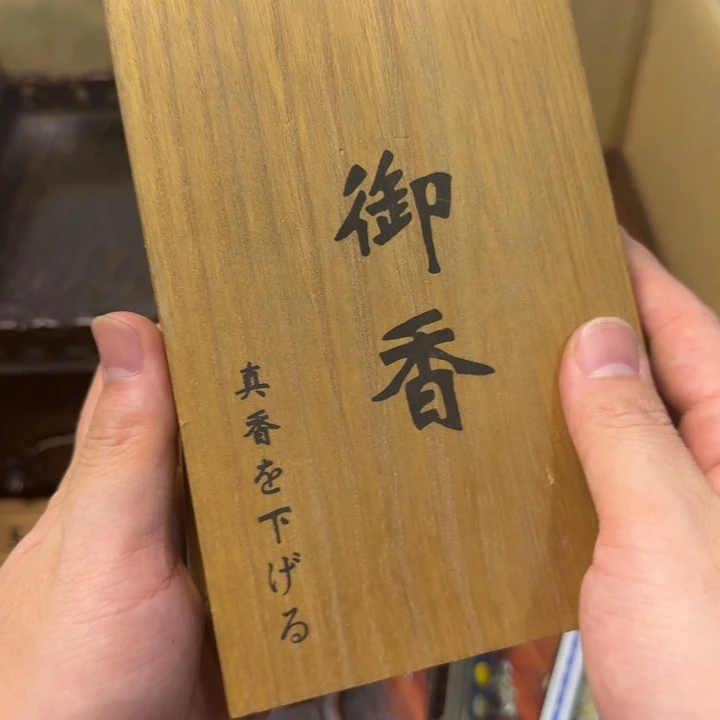 御香
真香を下げる